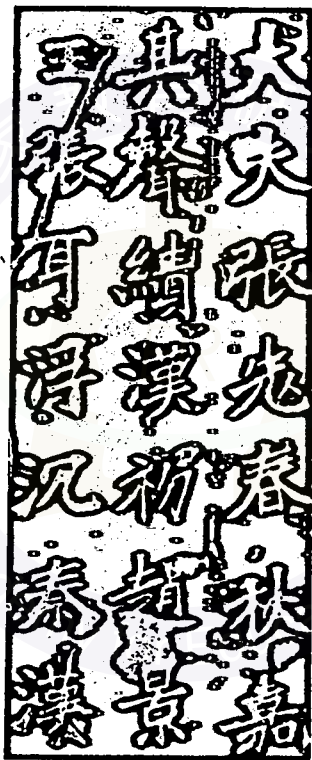 大夫張老春秋嘉
其聲績漢初趙景
王張耳浮沉秦漢